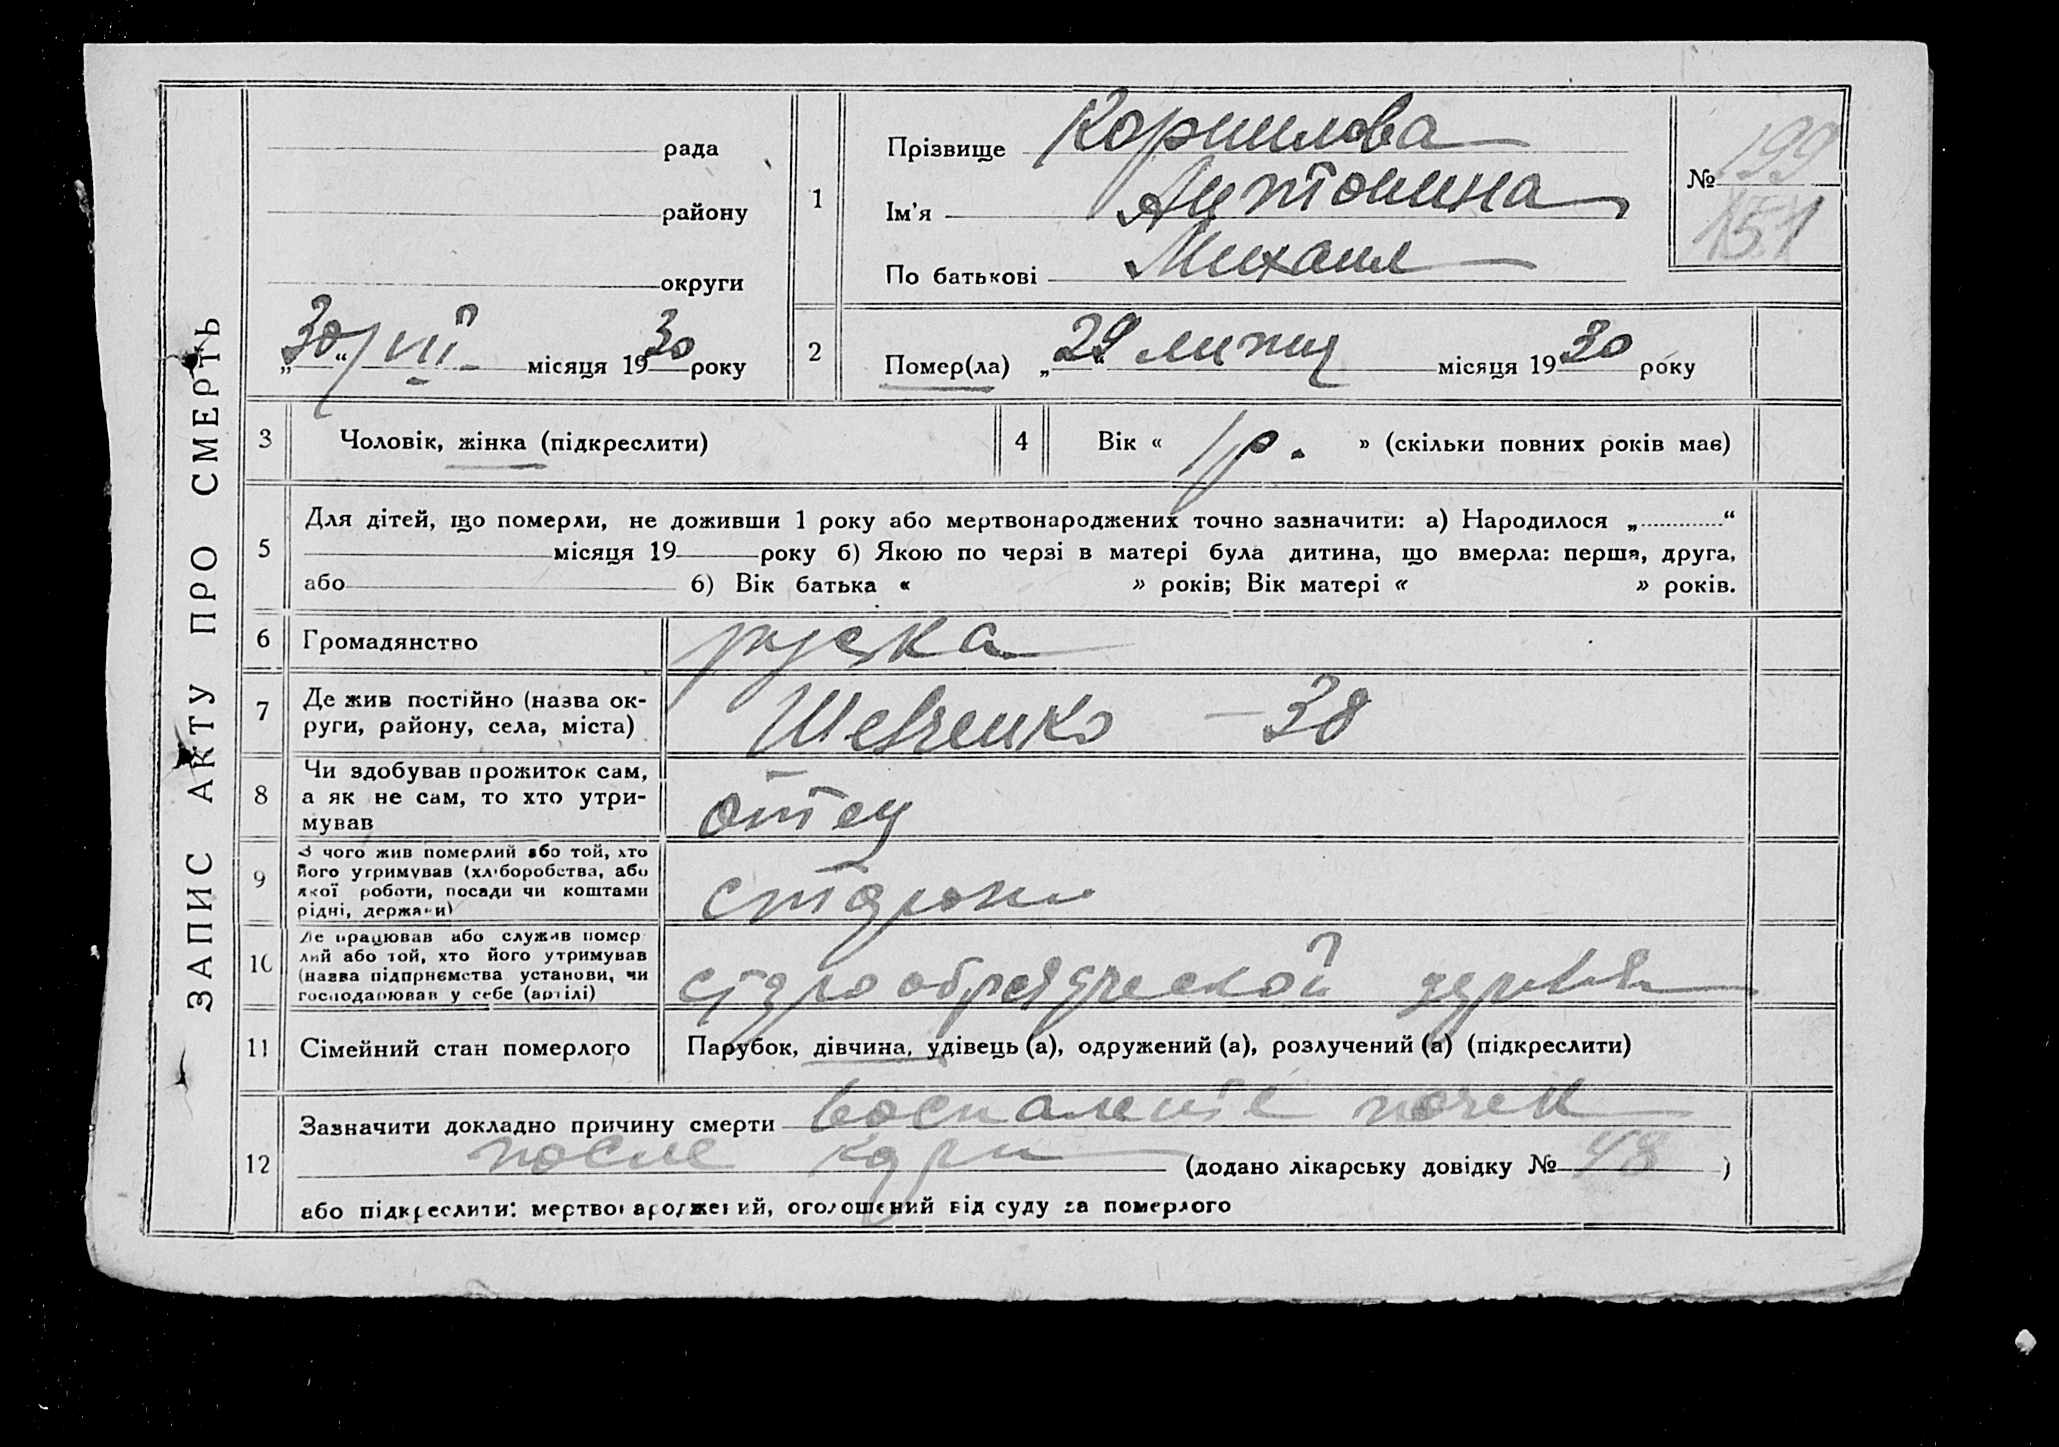 ЗАПИС АКТУ ПРО СМЕРТЬ
рада
району
округи
„30“ VII місяця 1930 року
1
Прізвище Корнилова
Ім'я Антонина
По батькові Михаил
№ 199
151
2
Помер(ла) „29“ липня місяця 1930 року
3 Чоловік, жінка (підкреслити)
4 Вік « 1 р. » (скільки повних років має)
5
Для дітей, що померли, не доживши 1 року або мертвонароджених точно зазначити: а) Народилося „ “
місяця 19 року б) Якою по черзі в матері була дитина, що вмерла: перша, друга,
або 6) Вік батька « » років; Вік матері « » років.
6 Громадянство руска
7 Де жив постійно (назва ок-
руги, району, села, міста)
Шевченко – 38
8 Чи здобував прожиток сам,
а як не сам, то хто утри-
мував
отец
9 З чого жив померлий або той, хто
його утримував (хліборобства, або
якої роботи, посади чи коштами
рідні, держави)
сторож
10 Де працював або служив помер
лий або той, хто його утримував
(назва підприємства установи, чи
господарював у себе (артілі)
старообрядческой
11 Сімейний стан померлого Парубок, дівчина, удівець (а), одружений (а), розлучений (а) (підкреслити)
12
Зазначити докладно причину смерти воспаление почек
после кори (додано лікарську довідку № 48 )
або підкреслити: мертвонароджений, оголошений від суду за померлого